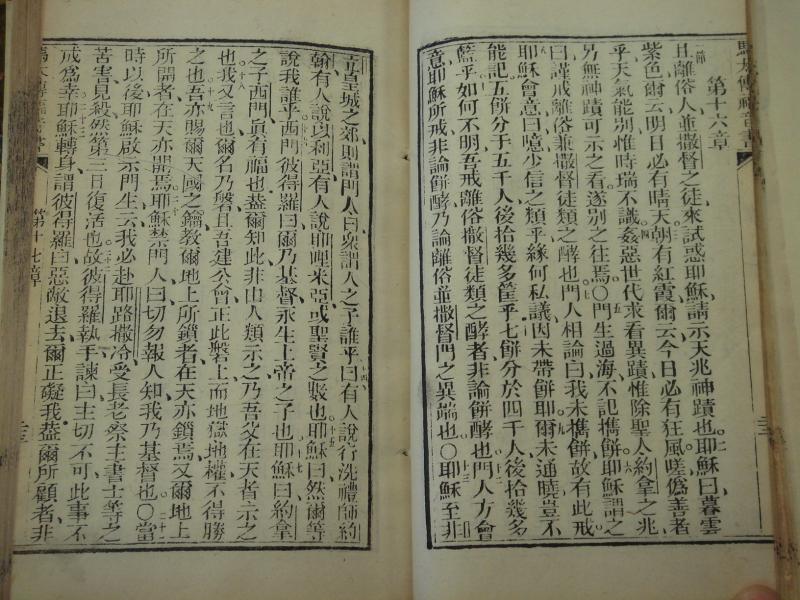 第十六章
且離俗人並撒督之徒來試惑耶穌請示天兆神蹟也耶穌曰暮雲
紫色爾云明日必有晴天朝有紅霞爾云今日必有狂風嗟僞善者
乎天氣能別惟時瑞不識姦惡世代求看異蹟惟除聖人約拿之兆
另無神蹟可示之看遂別之往焉〇門生過海不記攜餅耶穌謂之
曰謹戒離俗並撒督徒類之酵也門人相論曰我未攜餅故有此戒
耶穌會意曰噫少信之類乎緣何私議因未帶餅耶爾未通曉豈不
能記五餅分于五千人後拾幾多筐乎七餅分於四千人後拾幾多
籃乎如何不明吾戒離俗撒督徒類之酵者非論餅酵也門人方會
意耶穌所戒非論餅酵乃論離俗並撒督門之異端也〇耶穌至非
立皇城之郊則謂門人曰眾謂人之子誰乎曰有人說行洗禮師約
翰有人說以利亞有人說耶哩米亞或聖賢之數也耶穌曰然爾等
說我誰乎西門彼得羅曰爾乃基督永生上帝之子也耶穌曰約拿
之子西門眞有福也葢爾知此非由人類示之乃吾父在天者示之
也我又言也爾名乃磐且吾建公會正此磐上而地獄地權不得勝
之也吾亦賜爾天國之鑰教爾地上所鎖者在天亦鎖焉又爾地上
所開者在天亦開焉耶穌禁門人曰切勿報人知我乃基督也〇當
時以後耶穌啟示門生云我必赴耶路撒冷受長老祭主書士等之
苦害見殺然第三日復活也故彼得羅執手諫曰主切不可此事不
成爲幸耶穌轉身謂彼得羅曰惡敵退去爾正礙我葢爾所顧者非
第十七章